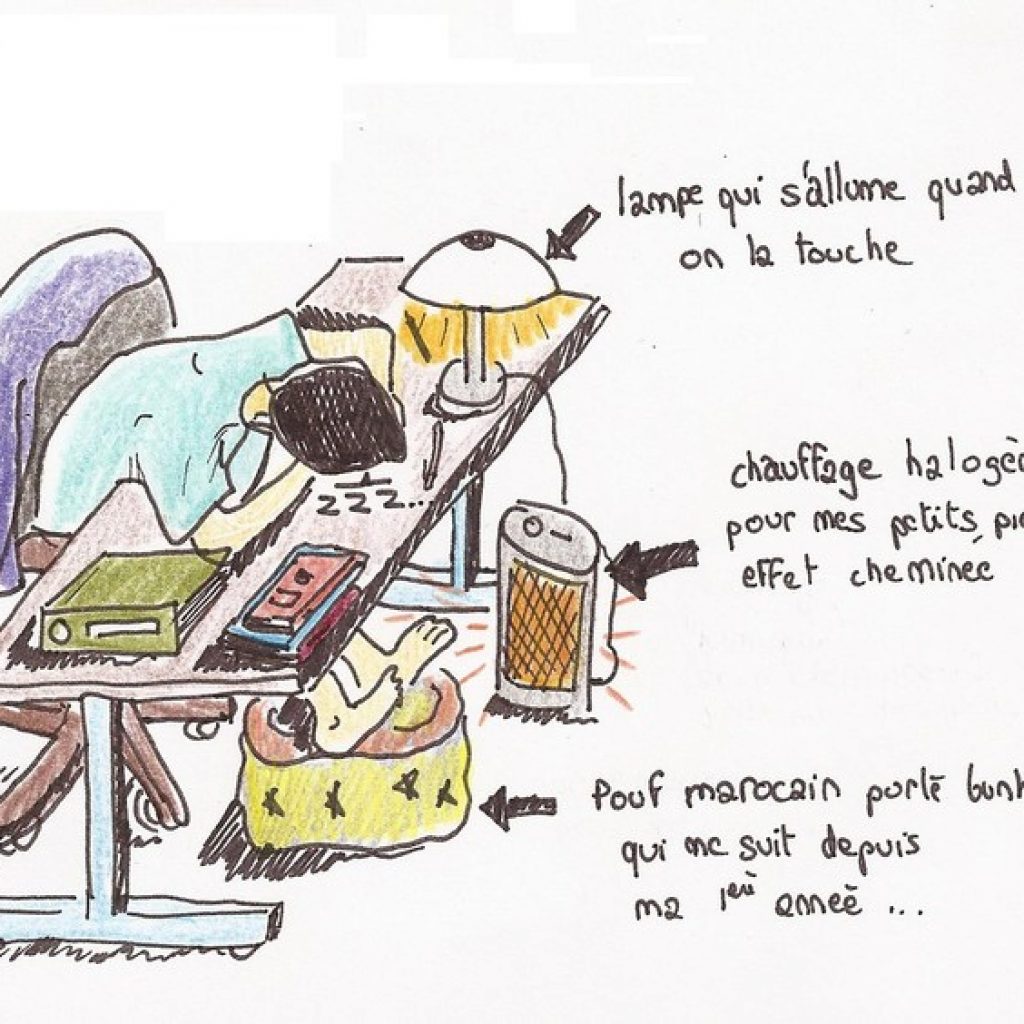 lampe qui s'allume quand
on la touche
zzz...
chauffage halogè
pour mes petits pie
effet cheminée
Pouf marocain porte bunh
qui me suit depuis
ma 1erè anneè ...